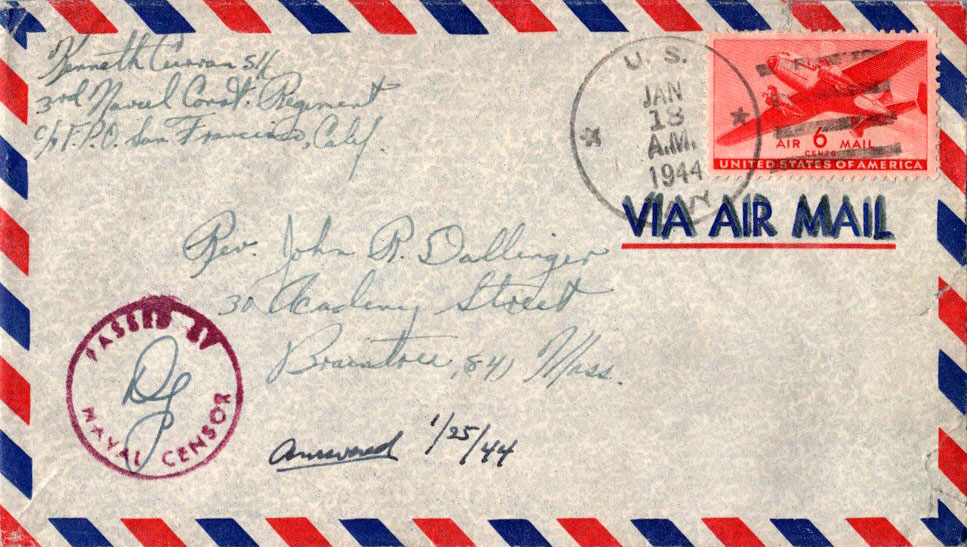 Kenneth Curran SK
3rd Naval Const. Regiment
c/o F.P.O. San Francisco, Calif.
U. S. NAVY
JAN
18
A.M.
1944
AIR 6 MAIL
CENTS
UNITED STATES OF AMERICA
VIA AIR MAIL
Rev. John P. Dallinger
30 Academy Street
Braintree, 84, Mass.
PASSED BY
NAVAL CENSOR
answered 1/25/44